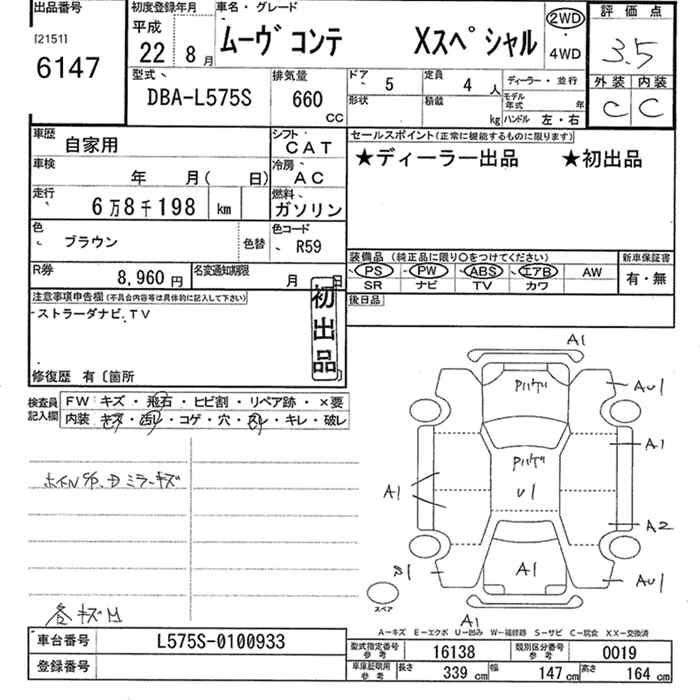 出品番号
[2151]
6147
初度登録年月
平成
22年8月
車名・グレード
ムーヴ コンテ Xスペシャル
2WD
・
4WD
評価点
3.5
外装 内装
C C
型式
DBA-L575S
排気量
660
CC
ドア 5
定員 4人
ディーラー・並行
形状
積載 kg
モデル年式 年
ハンドル 左・右
車歴 自家用
シフト CAT
車検 年 月( 日)
冷房 AC
走行 6万8千198 km
燃料 ガソリン
色 ブラウン
色替
色コード R59
R券 8,960円
名変通知期限 月 日
セールスポイント(正常に機能するものに限ります)
★ディーラー出品 ★初出品
装備品(純正品に限り○をつけてください)
新車保証書
PS PW ABS エアB AW
SR ナビ TV カワ
有・無
後日品
注意事項申告欄(不具合内容等は具体的に記入して下さい)
ストラーダナビ.TV
初出品
修復歴 有〔箇所 〕
検査員記入欄
FW キズ・飛石・ヒビ割・リペア跡・×要
内装 キズ・凹・コゲ・穴・・キレ・破レ
ミラーキズ
キズ
A1
AU1
A1
U1
A1
A2
A1
AU1
A1
スペア
A-キズ E-エクボ U-凹み W-補修跡 S-サビ C-腐食 XX-交換済
車台番号 L575S-0100933
登録番号
型式指定番号 参考 16138
類別区分番号 参考 0019
車庫証明用 参考 長さ 339cm 幅 147cm 高さ 164cm